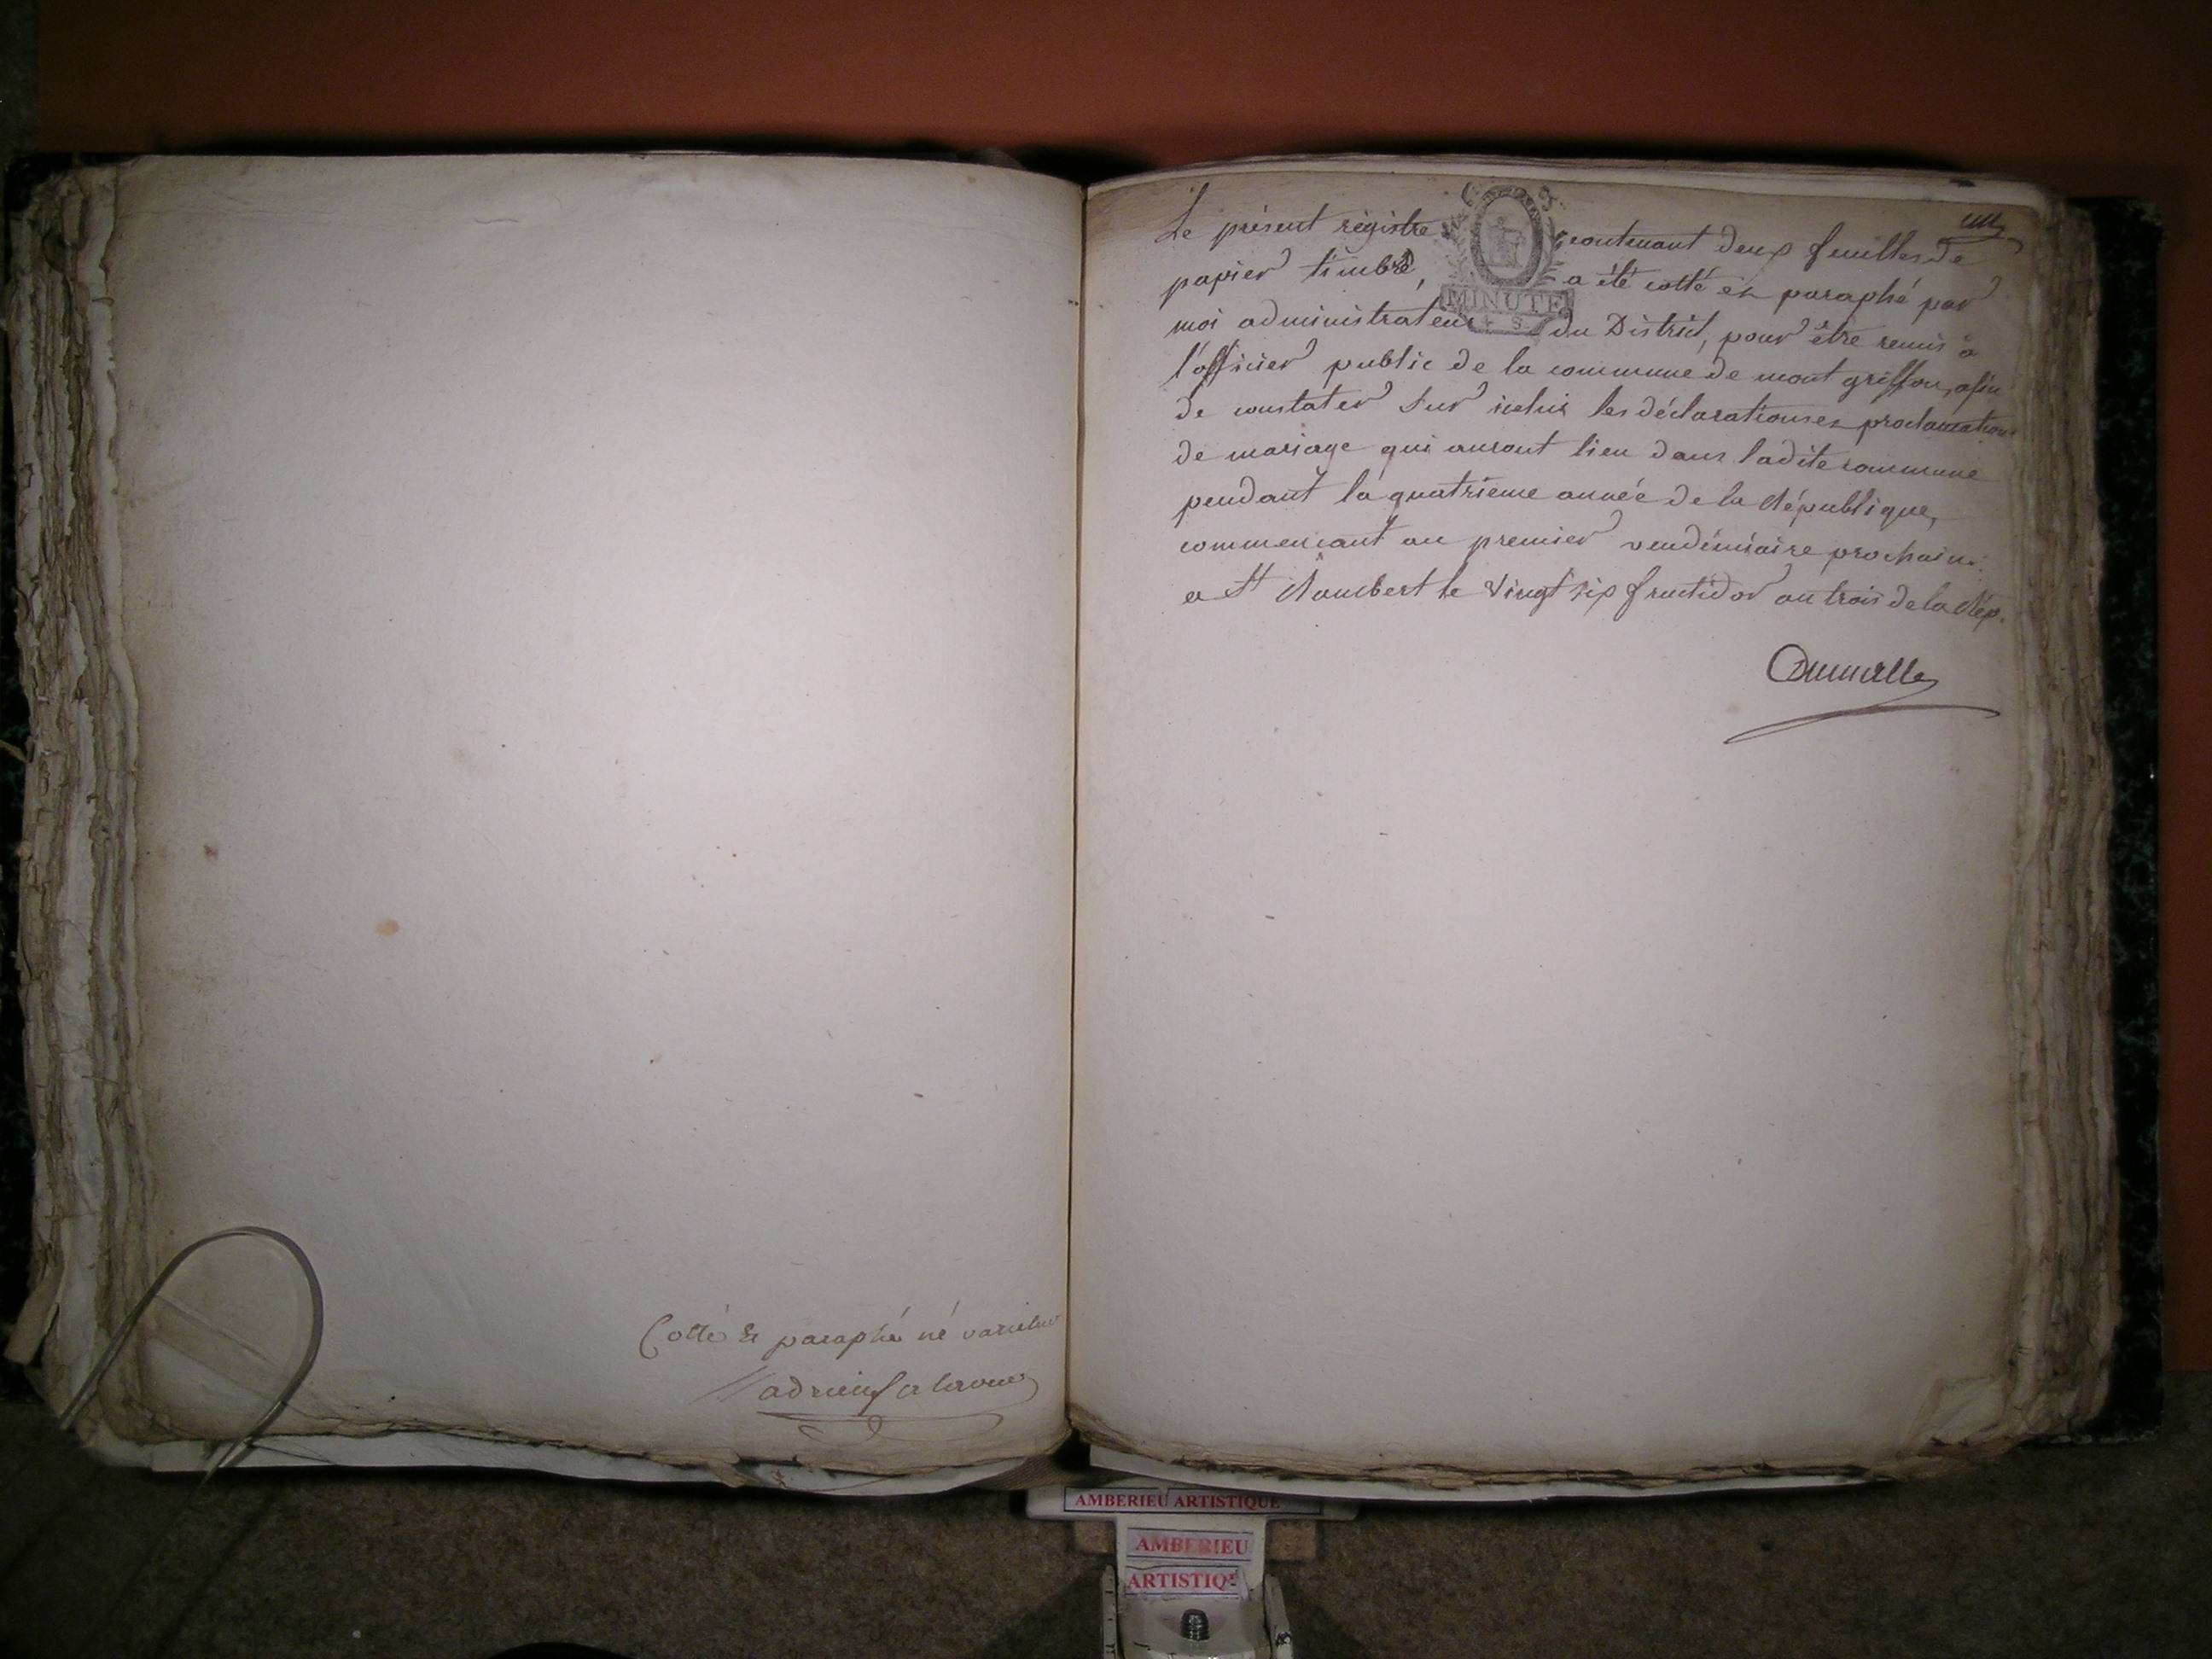 Cotté & paraphé né varietur
un
Le présent régistre contenant deux feuilles de
papier timbré, a été cotté et paraphé par
moi administrateur du District, pour être remis à
l'officier public de la commune de mont griffon, afin
de constater sur icelui les déclarations et proclamations
de mariage qui auront lieu dans ladite commune
pendant la quatrieme année de la République,
commençant au premier vendémiaire prochain.
a St Rambert le vingt six fructidor an trois de la Rép.
MINUTE
AMBERIEU ARTISTIQUE
AMBERIEU
ARTISTIQUE